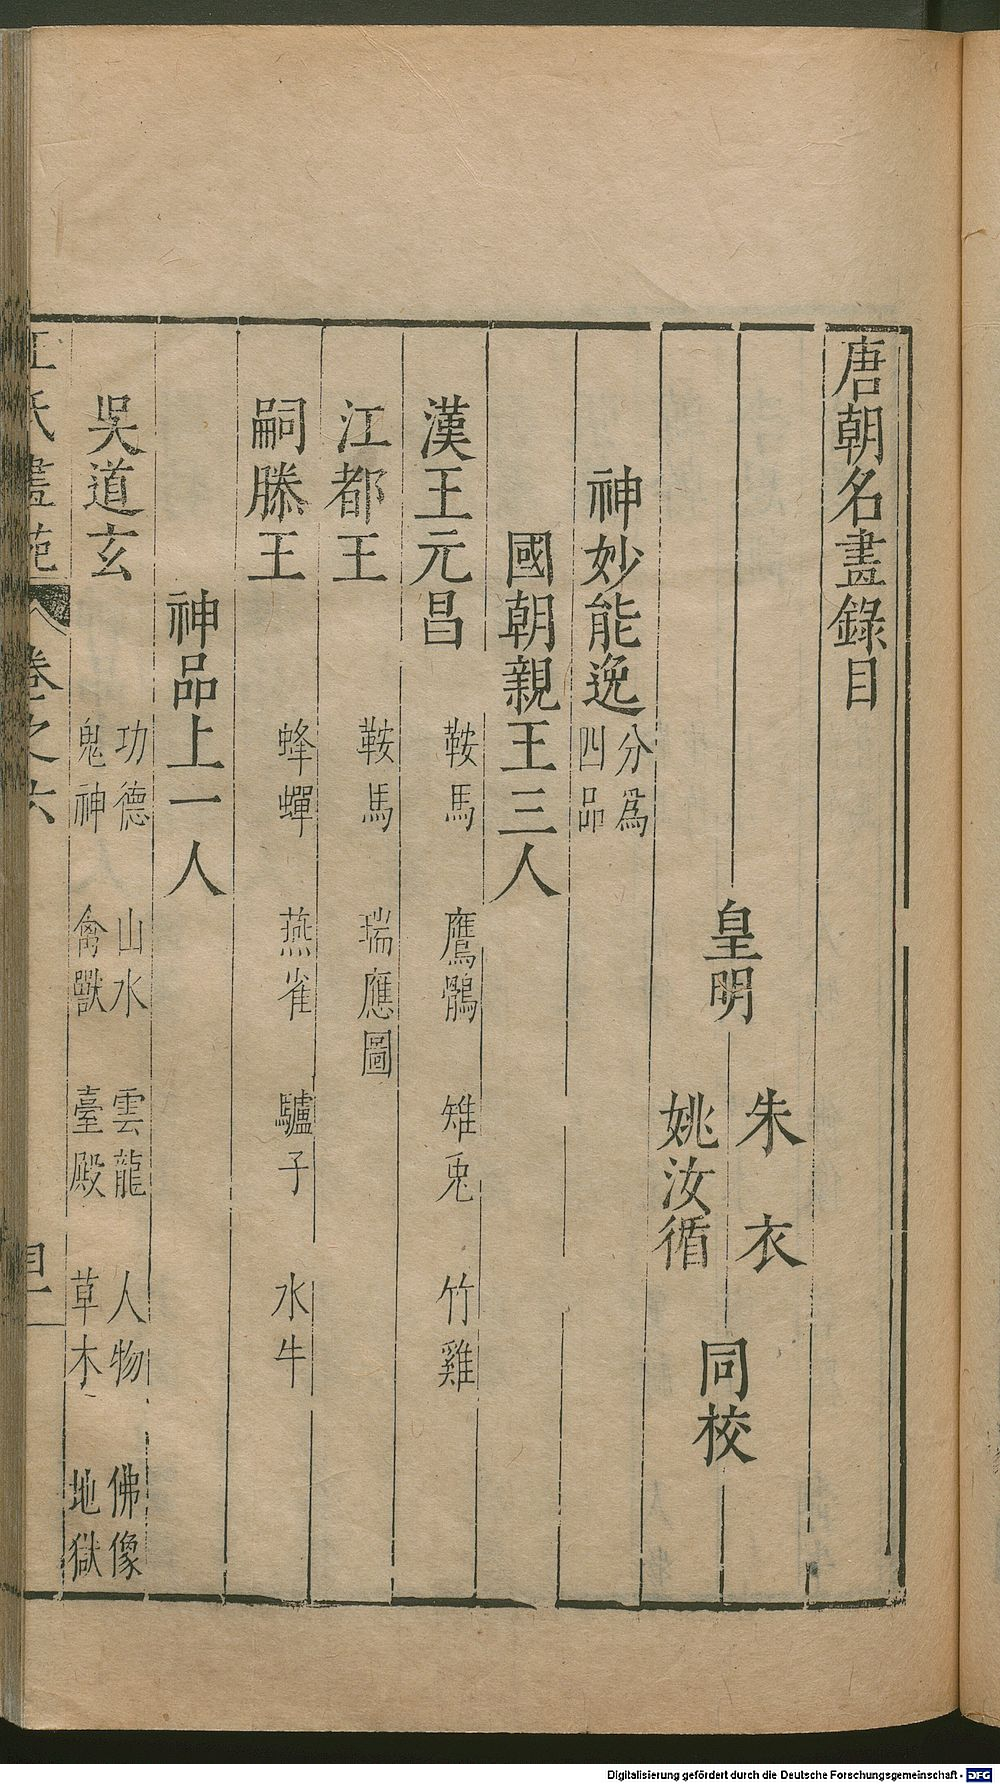 唐朝名畫錄目
皇明
朱衣
姚汝循
同校
神妙能逸分爲四品
國朝親王三人
漢王元昌 鞍馬 鷹鶻 雉兎 竹雞
江都王 鞍馬 瑞應圖
嗣滕王 蜂蟬 燕雀 驢子 水牛
神品上一人
吳道玄 功德 山水 雲龍 人物 佛像
鬼神 禽獸 臺殿 草木 地獄
氏畫苑 卷之六
Digitalisierung gefördert durch die Deutsche Forschungsgemeinschaft - DFG